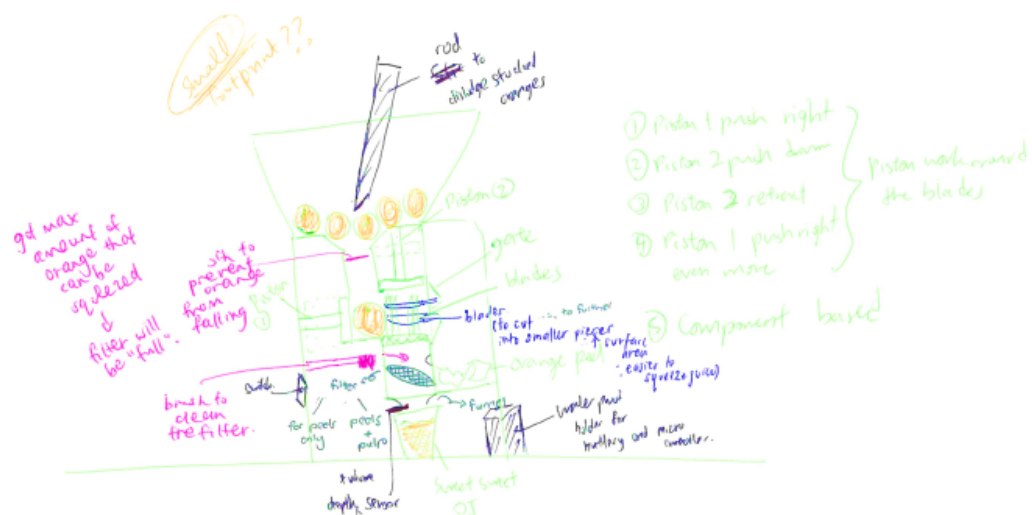 Small
footprint??
rod
to
dislodge stucked
oranges
① Piston 1 push right
② Piston 2 push down
③ Piston 2 retract
④ Piston 1 push right
even more
Piston work around
the blades
⑤ Component based
Piston ②
gate
blades
get max
amount of
orange that
can be
squeezed
filter will
be "full".
to
prevent
orange
from
falling
Piston
①
blades
(to cut to further
into smaller pieces
↑ surface
area
∴ easier to
squeeze juice)
orange peel
brush to
clean
the filter.
switch
filter
for peels
only
peels
+
pulp
funnel
water proof
holder for
battery and micro
controller.
depth sensor
sweet sweet
OJ